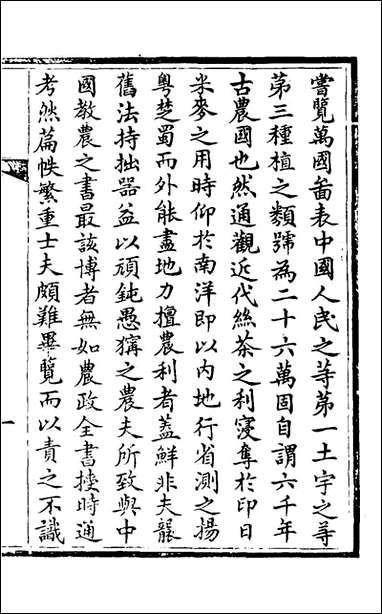 嘗覽萬國啚表中國人民之等第一土宇之等
第三種植之類號為二十六萬固自謂六千年
古農國也然通觀近代絲茶之利寖奪於印日
米麥之用時仰於南洋即以內地行省測之揚
粵楚蜀而外能盡地力擅農利者蓋鮮非夫襲
舊法持拙器益以頑鈍愚獷之農夫所致與中
國教農之書最該博者無如農政全書授時通
考然篇帙繁重士夫頗難畢覽而以責之不識
一